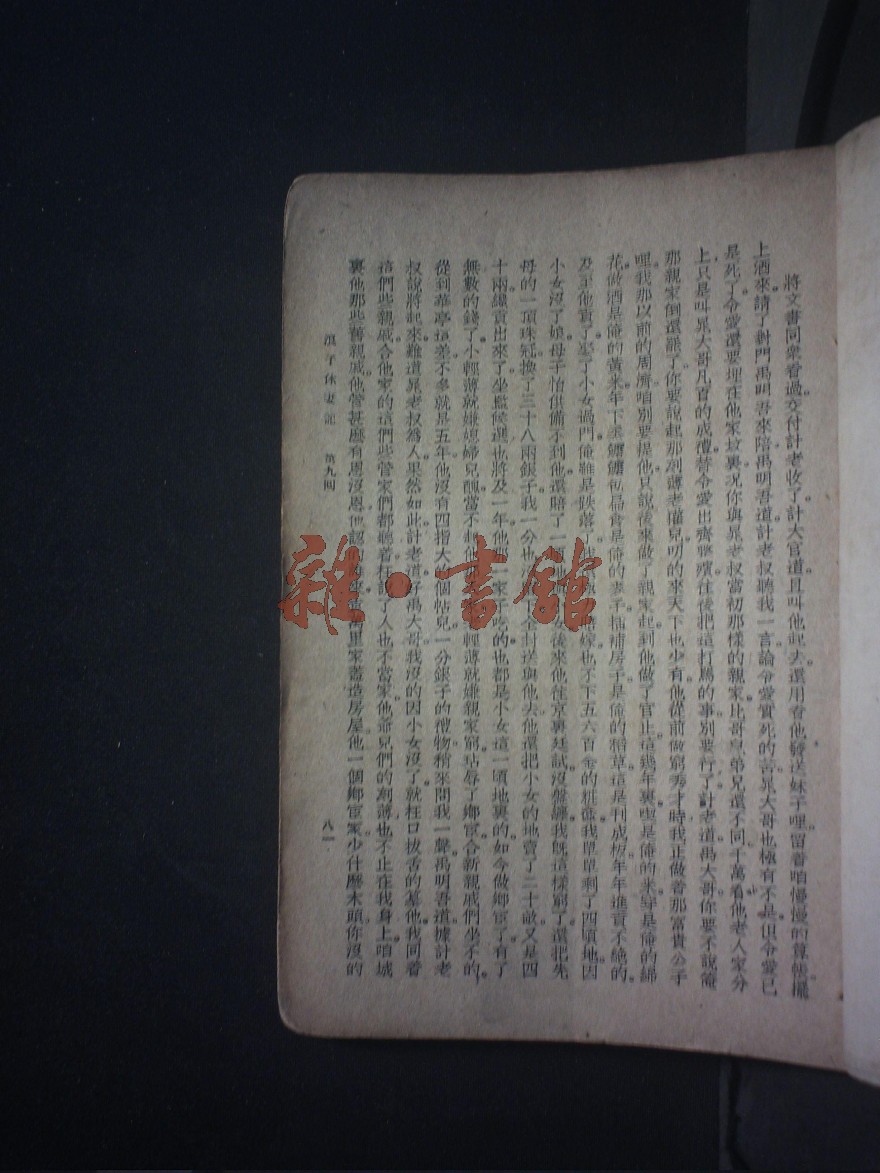 將文書同衆看過交付計老收了計大官道且叫他起去還用着他發送妹子哩留着咱慢慢的算帳擺
上酒來請了對門禹明吾來陪禹明吾道計老叔聽我一言論令愛實死的苦晁大哥也極有不是但令愛已
是死了令愛還要埋在他家坟裏况你與晁老叔當初那樣的親家比哥兒弟兄還不同千萬看他老人家分
上只是叫晁大哥凡百的成禮替令愛出齊整殯往後把這打罵的事別要行了計老道禹大哥你要不說俺
那親家倒還罷了你要說起那刻薄老獾兒叨的來天下也少有他從前做窮秀才時我正做着那富貴公子
哩我那以前的周濟咱別要提他只說後來做了親家起到他做了官止這幾年裏喫是俺的米穿是俺的綿
花做酒是俺的黃米年下蒸饝饝包扁食是俺的麥子插補房子是俺的稻草這是刊成板年年進貢不絶的
及至他貢了娶了小女過門俺雖是跌落了
嫁也不下五六百金的粧奩我單單剩了四頃地因
小女沒了娘母子怕供備不到他還賠了一
後來他往京裏廷試沒盤纏我既這樣窮了還把先
母的一頂珠冠換了三十八兩銀子我一分也
下全封送與他去他還把小女的地賣了二十畝又是四
十兩纔貢出來了坐監候選也將及一年他
一家
吃的也都是小女這一頃地裏的如今做鄉宦了有了
無數的錢了小輕薄就嫌媳婦兒醜當不起他
輕薄就嫌親家窮玷辱了鄉宦合新親戚們坐不的
從到華亭這差不多就是五年他沒有四指大的個帖兒一分銀子的禮物稍來問我一聲禹明吾道據計老
叔說將起來難道晁老叔為人果然如此計老道好禹大哥我沒的因小女沒了就枉口拔舌的纂他我同着
這們些親戚合他家的這們些管家們都聽着枉說了人也不當家他爺兒們的刻薄也不止在我身上咱城
裏他那些舊親戚他管甚麼有恩沒恩他認的
家蓋造房屋他一個鄉宦家少什麼木頭你沒的
浪子休妻記 第九回
八一
雜·書館